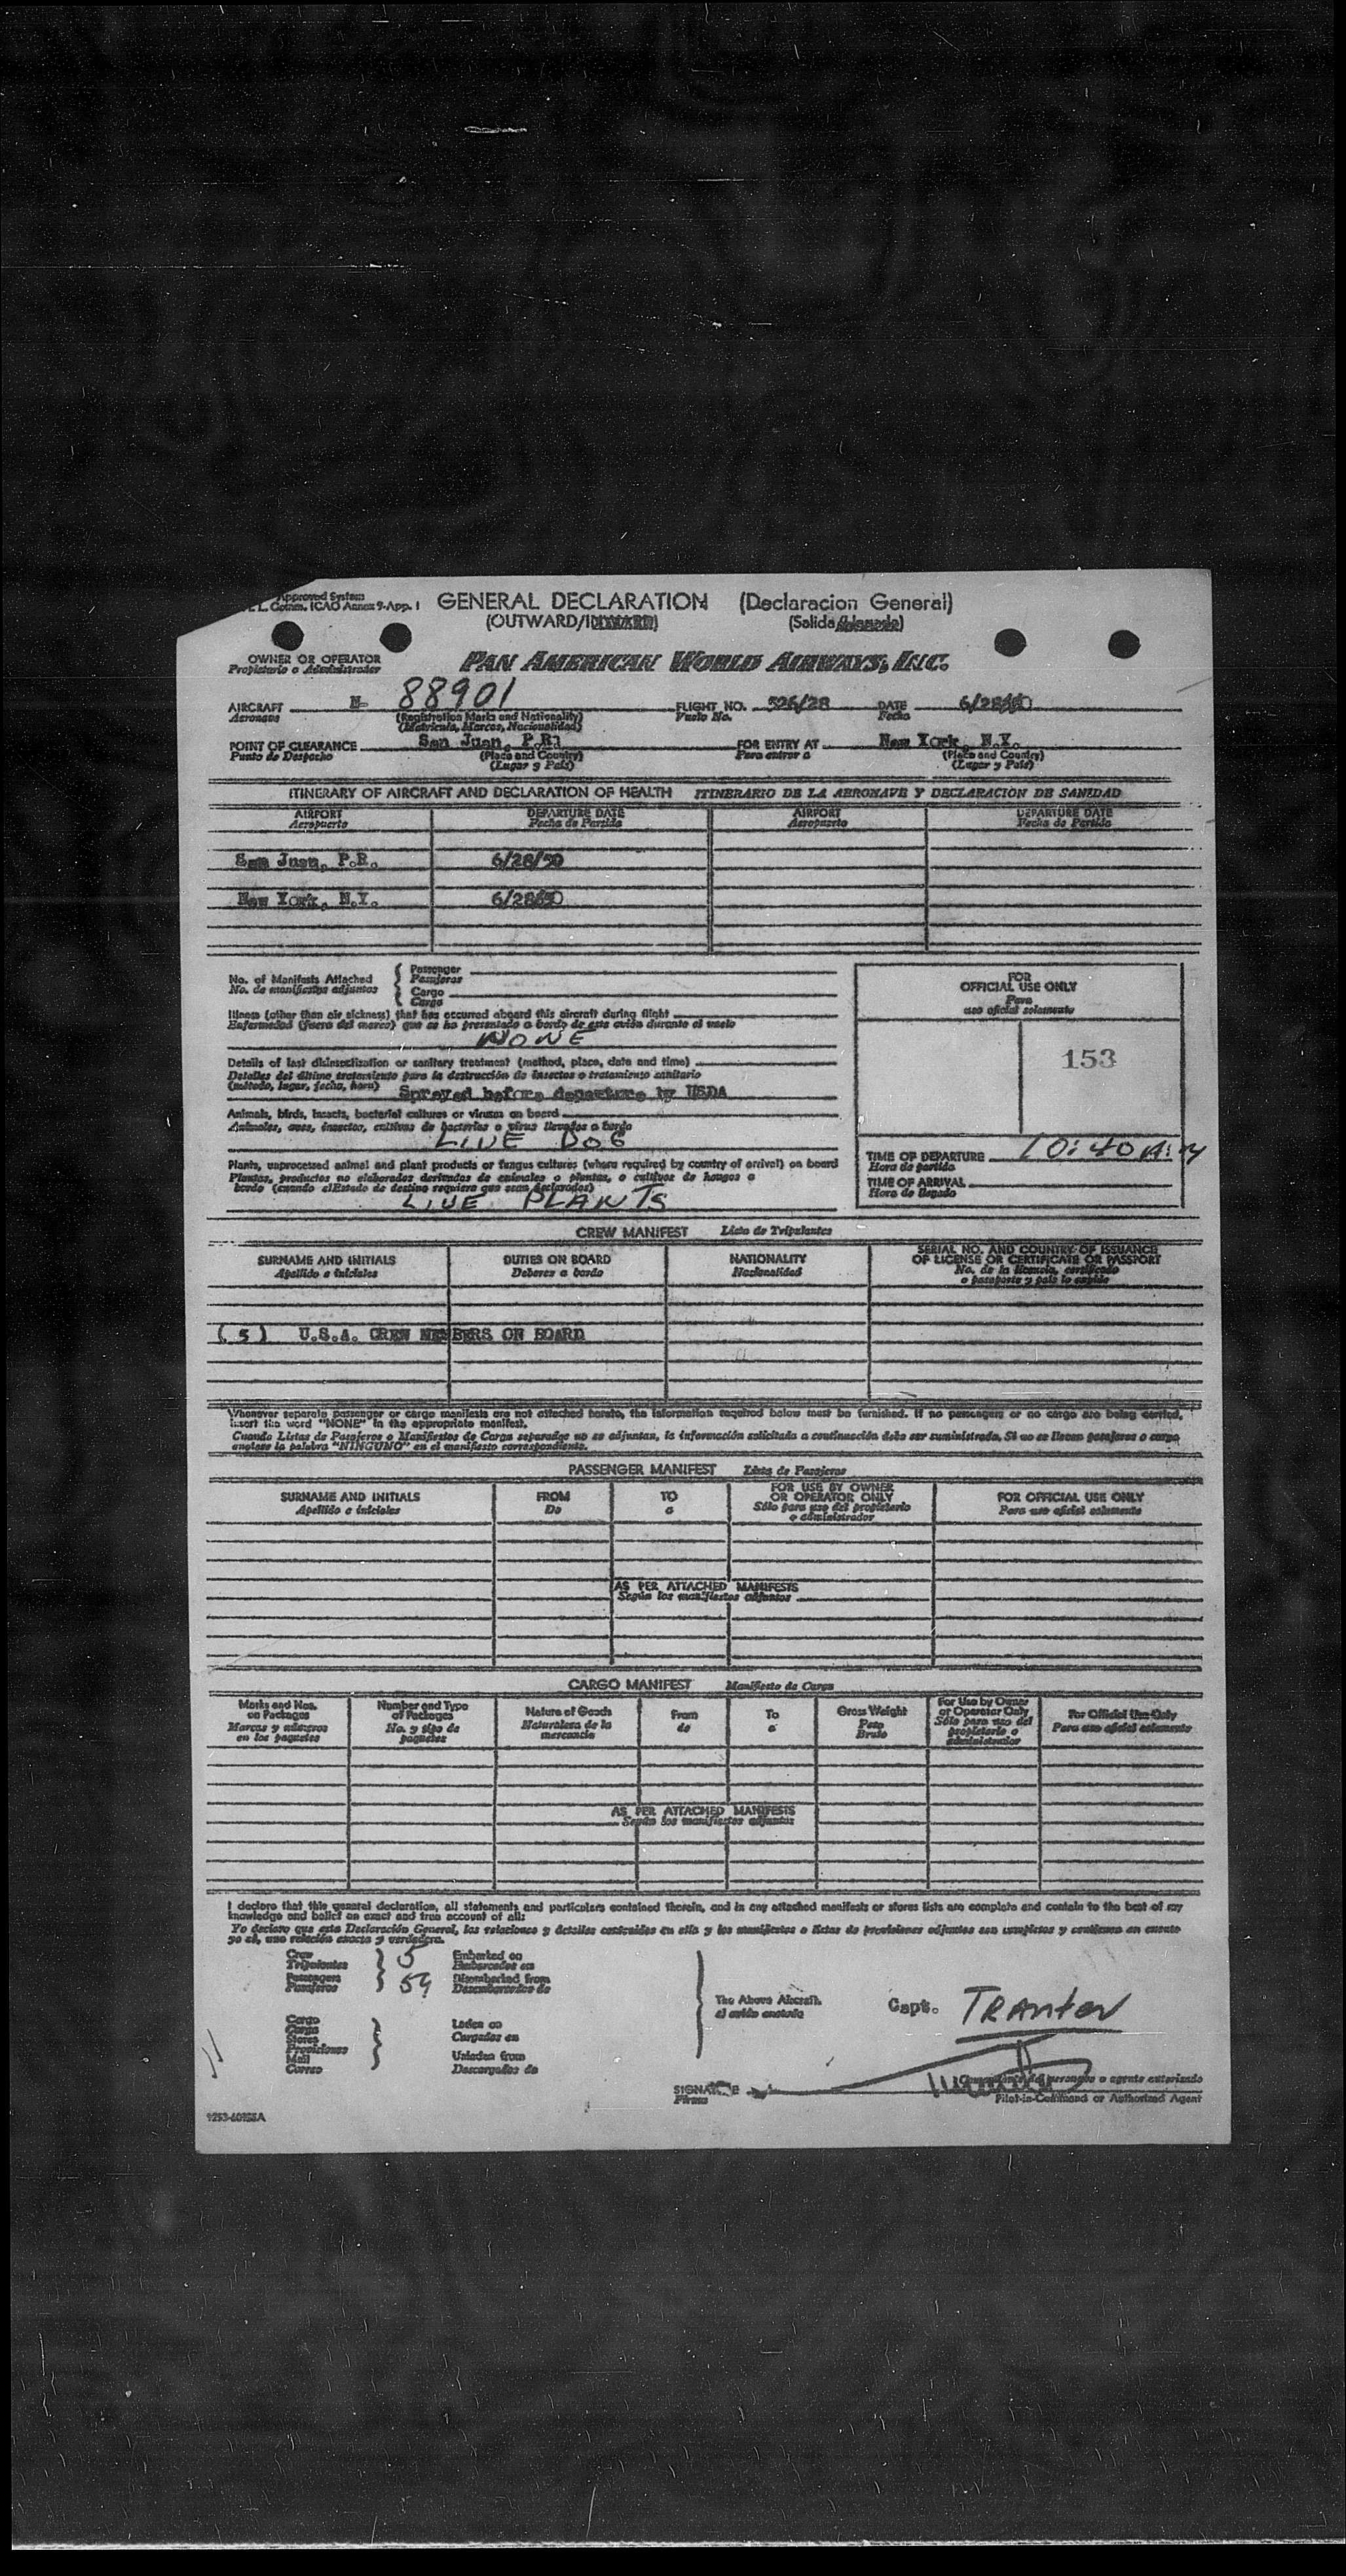 Approved System
Comm. ICAO Annex 9-App. 1
GENERAL DECLARATION (Declaracion General)
(OUTWARD/INWARD) (Salida/
OWNER OR OPERATOR
Propietario o Administrador
PAN AMERICAN WORLD AIRWAYS, INC.
AIRCRAFT N- 88901 FLIGHT NO. 526/28 DATE 6/28/50
Aeronave (Registration Marks and Nationality) Vuelo No. Fecha
(Matricula, Marcas, Nacionalidad)
POINT OF CLEARANCE San Juan, P.R. FOR ENTRY AT New York, N.Y.
Punto de Despacho (Place and Country) Para entrar a (Place and Country)
(Lugar y País) (Lugar y País)
ITINERARY OF AIRCRAFT AND DECLARATION OF HEALTH ITINERARIO DE LA AERONAVE Y DECLARACION DE SANIDAD
AIRPORT DEPARTURE DATE AIRPORT DEPARTURE DATE
Aeropuerto Fecha de Partida Aeropuerto Fecha de Partida
San Juan, P.R. 6/28/50
New York, N.Y. 6/28/50
No. of Manifests Attached
No. de manifiestos adjuntos
Passenger
Pasajeros
Cargo
Cargo
Illness (other than air sickness) that has occurred aboard this aircraft during flight
Enfermedad (fuera del mareo) que se ha presentado a bordo de este avión durante el vuelo
NONE
Details of last disinsectization or sanitary treatment (method, place, date and time)
Detalles del último tratamiento para la destrucción de insectos o tratamiento sanitario
(método, lugar, fecha, hora) Sprayed before departure by USDA
Animals, birds, insects, bacterial cultures or viruses on board
Animales, aves, insectos, cultivos de bacterias o virus llevados a bordo
LIVE DOG
Plants, unprocessed animal and plant products or fungus cultures (where required by country of arrival) on board
Plantas, productos no elaborados derivados de animales o plantas, o cultivos de hongos a
bordo (cuando el Estado de destino requiera que sean declarados)
LIVE PLANTS
FOR
OFFICIAL USE ONLY
Para
uso oficial solamente
153
TIME OF DEPARTURE 10:40 A.M
Hora de partida
TIME OF ARRIVAL
Hora de llegada
CREW MANIFEST Lista de Tripulantes
SURNAME AND INITIALS DUTIES ON BOARD NATIONALITY SERIAL NO. AND COUNTRY OF ISSUANCE
OF LICENSE OR CERTIFICATE OR PASSPORT
Apellido e iniciales Deberes a bordo Nacionalidad No. de la licencia, certificado
o pasaporte y país lo expido
( 5 ) U.S.A. CREW MEMBERS ON BOARD
Whenever separate passenger or cargo manifests are not attached hereto, the information required below must be furnished. If no passengers or no cargo are being carried,
insert the word "NONE" in the appropriate manifest.
Cuando Listas de Pasajeros o Manifiestos de Carga separados no se adjuntan, la información solicitada a continuación debe ser suministrada. Si no se llevan pasajeros o carga
anótese la palabra "NINGUNO" en el manifiesto correspondiente.
PASSENGER MANIFEST Lista de Pasajeros
SURNAME AND INITIALS FROM TO FOR USE BY OWNER
OR OPERATOR ONLY FOR OFFICIAL USE ONLY
Apellido e iniciales De a Sólo para uso del propietario
o administrador Para uso oficial solamente
AS PER ATTACHED MANIFESTS
Según los manifiestos adjuntos
CARGO MANIFEST Manifiesto de Carga
Marks and Nos.
on Packages
Marcas y números
en los paquetes
Number and Type
of Packages
No. y tipo de
paquetes
Nature of Goods
Naturaleza de la
mercancía
From
de
To
a
Gross Weight
Peso
Bruto
For Use by Owner
or Operator Only
Sólo para uso del
propietario o
administrador
For Official Use Only
Para uso oficial solamente
AS PER ATTACHED MANIFESTS
Según los manifiestos adjuntos
I declare that this general declaration, all statements and particulars contained therein, and in any attached manifests or stores lists are complete and contain to the best of my
knowledge and belief an exact and true account of all:
Yo declaro que esta Declaración General, las relaciones y detalles contenidos en ella y los manifiestos o listas de provisiones adjuntos son completos y contienen en cuanto
yo sé, una relación exacta y verdadera.
Crew 5 Embarked on
Tripulantes Embarcados en
Passengers 54 Disembarked from
Pasajeros Desembarcados de
Cargo
Carga
Stores
Provisiones
Mail
Correo
Laden on
Cargados en
Unladen from
Descargados de
The Above Aircraft.
el avión anotado
Capt. TRANTER
SIGNATURE
Firma
Comandante del aeronave o agente autorizado
Pilot-in-Command or Authorized Agent